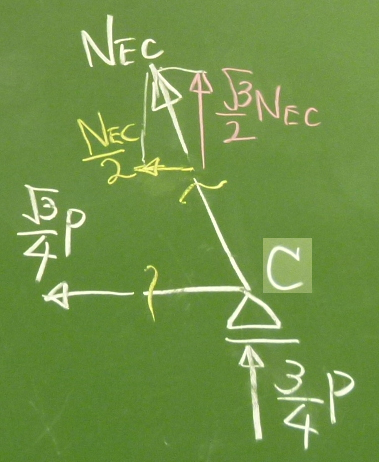 NEC
√3/2 NEC
NEC/2
√3/4 P
C
3/4 P